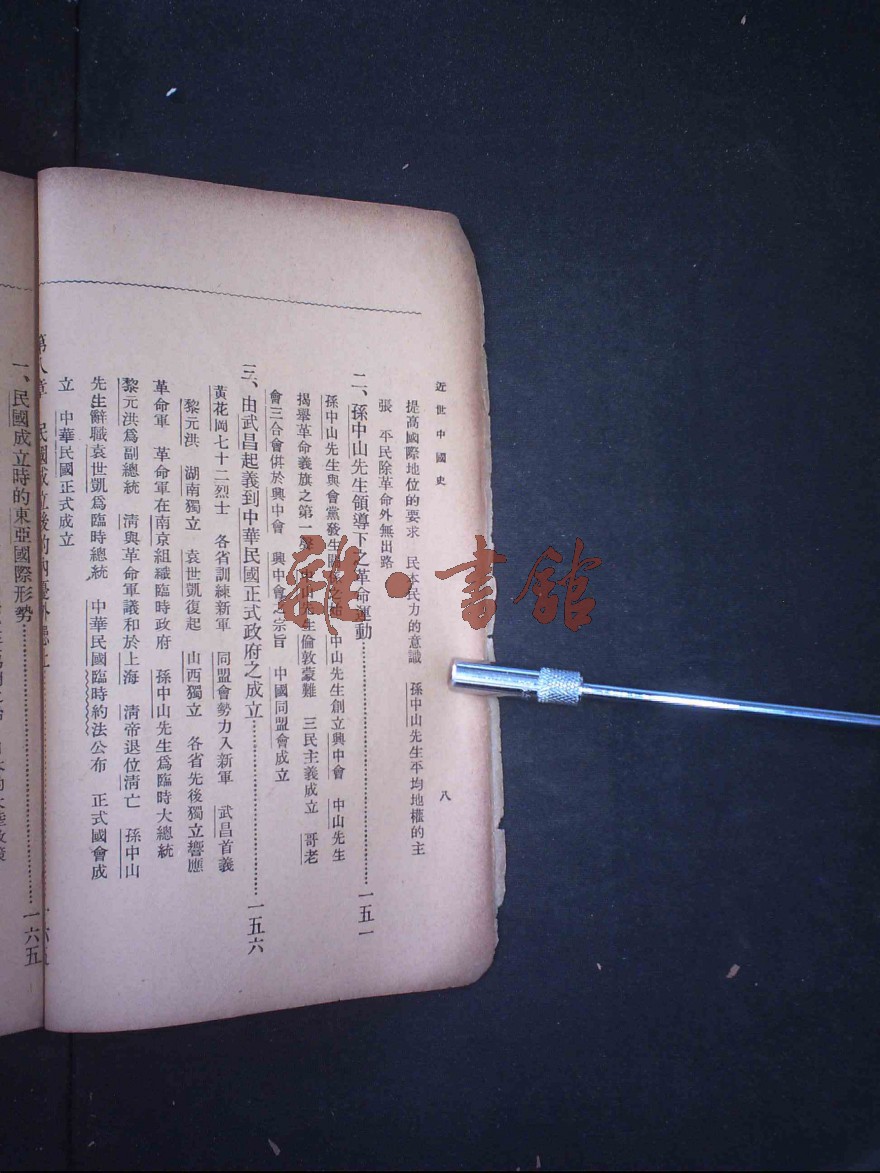 近世中國史
八
提高國際地位的要求 民本民力的意識 孫中山先生平均地權的主
張 平民除革命外無出路
二、孫中山先生領導下之革命運動……一五一
孫中山先生與會黨發生關係之始 中山先生創立興中會 中山先生
揭舉革命義旗之第一聲 中山先生倫敦蒙難 三民主義成立 哥老
會三合會併於興中會 興中會之宗旨 中國同盟會成立
三、由武昌起義到中華民國正式政府之成立……一五六
黃花岡七十二烈士 各省訓練新軍 同盟會勢力入新軍 武昌首義
黎元洪 湖南獨立 袁世凱復起 山西獨立 各省先後獨立響應
革命軍 革命軍在南京組織臨時政府 孫中山先生爲臨時大總統
黎元洪爲副總統 清與革命軍議和於上海 清帝退位清亡 孫中山
先生辭職袁世凱爲臨時總統 中華民國臨時約法公布 正式國會成
立 中華民國正式成立
第八章 民國成立後的內憂外患上
一、民國成立時的東亞國際形勢……一六五
雜·書館